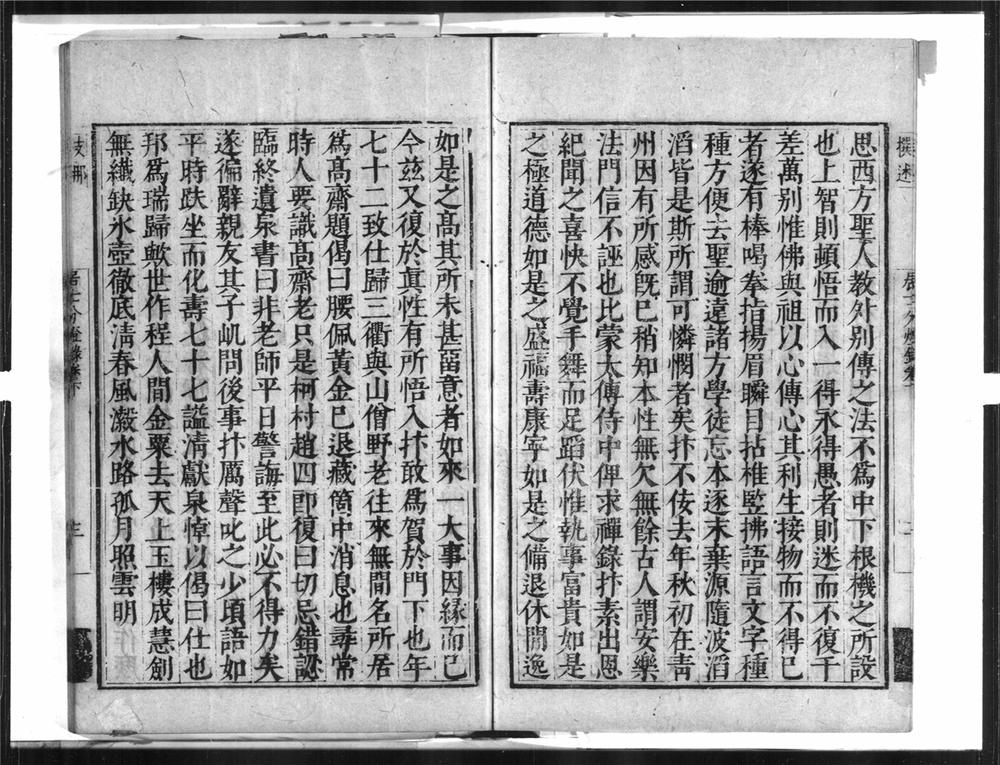 思西方聖人教外別傳之法不爲中下根機之所設
也上智則頓悟而入一得永得愚者則迷而不復千
差萬別惟佛與祖以心傳心其利生接物而不得已
者遂有棒喝拳指揚眉瞬目拈椎竪拂語言文字種
種方便去聖逾遠諸方學徒忘本逐末棄源隨波滔
滔皆是斯所謂可憐憫者矣抃不佞去年秋初在靑
州因有所感旣已稍知本性無欠無餘古人謂安樂
法門信不誣也比蒙太傅侍中俾求禪錄抃素出恩
紀聞之喜快不覺手舞而足蹈伏惟執事富貴如是
之極道德如是之盛福壽康寧如是之備退休閒逸
如是之高其所未甚畱意者如來一大事因緣而已
今茲又復於眞性有所悟入抃敢爲賀於門下也年
七十二致仕歸三衢與山僧野老往來無間名所居
爲高齋題偈曰腰佩黃金已退藏箇中消息也尋常
時人要識高齋老只是柯村趙四郎復曰切忌錯認
臨終遺泉書曰非老師平日警誨至此必不得力矣
遂徧辭親友其子㞦問後事抃厲聲叱之少頃語如
平時趺坐而化壽七十七謚淸獻泉悼以偈曰仕也
邦爲瑞歸歟世作程人間金粟去天上玉樓成慧劍
無纖缺氷壺徹底淸春風瀫水路孤月照雲明
撰述
居士分燈錄卷下
支那
居士分燈錄卷下